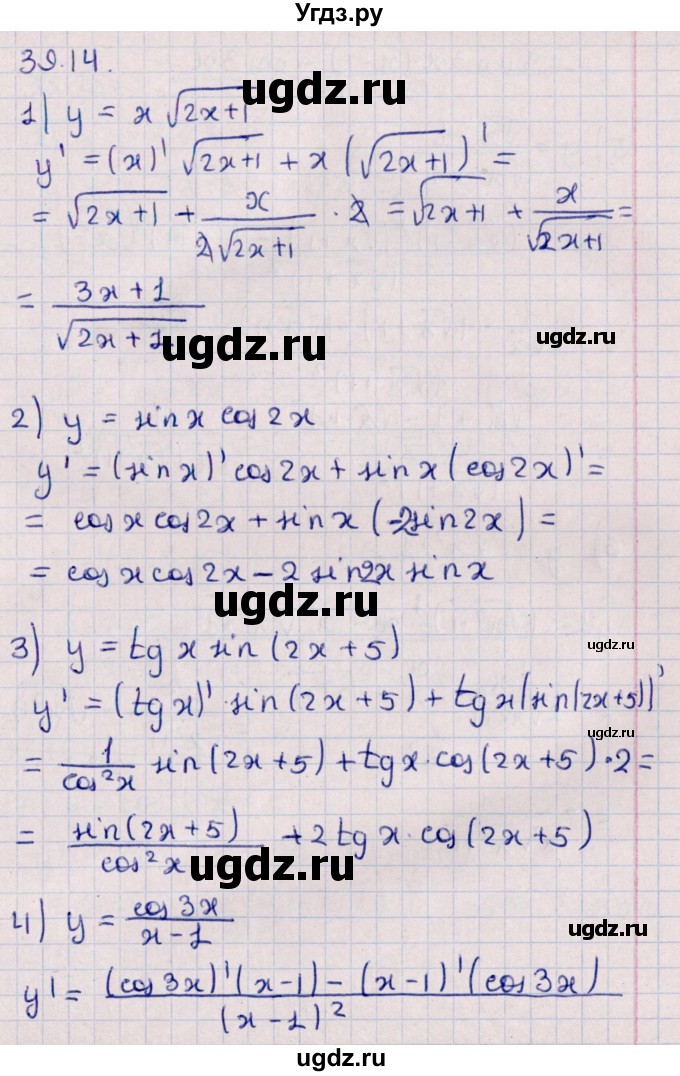 Угдз.ру
39.14.
ugdz.ru
1) y = x √(2x+1)
y' = (x)' √(2x+1) + x (√(2x+1))' =
= √(2x+1) + x/(2√(2x+1)) · 2 = √(2x+1) + x/√(2x+1) =
= (3x+1)/√(2x+1)
ugdz.ru
ugdz.ru
2) y = sin x cos 2x
y' = (sin x)' cos 2x + sin x (cos 2x)' =
= cos x cos 2x + sin x (-2sin 2x) =
= cos x cos 2x - 2 sin 2x sin x
ugdz.ru
3) y = tg x sin (2x+5)
ugdz.ru
y' = (tg x)' · sin (2x+5) + tg x (sin (2x+5))'
ugdz.ru
= 1/cos²x sin (2x+5) + tg x · cos (2x+5) · 2 =
= sin (2x+5)/cos²x + 2 tg x · cos (2x+5)
ugdz.ru
4) y = cos 3x/(x-1)
ugdz.ru
y' = ((cos 3x)' (x-1) - (x-1)' (cos 3x))/(x-1)²
ugdz.ru